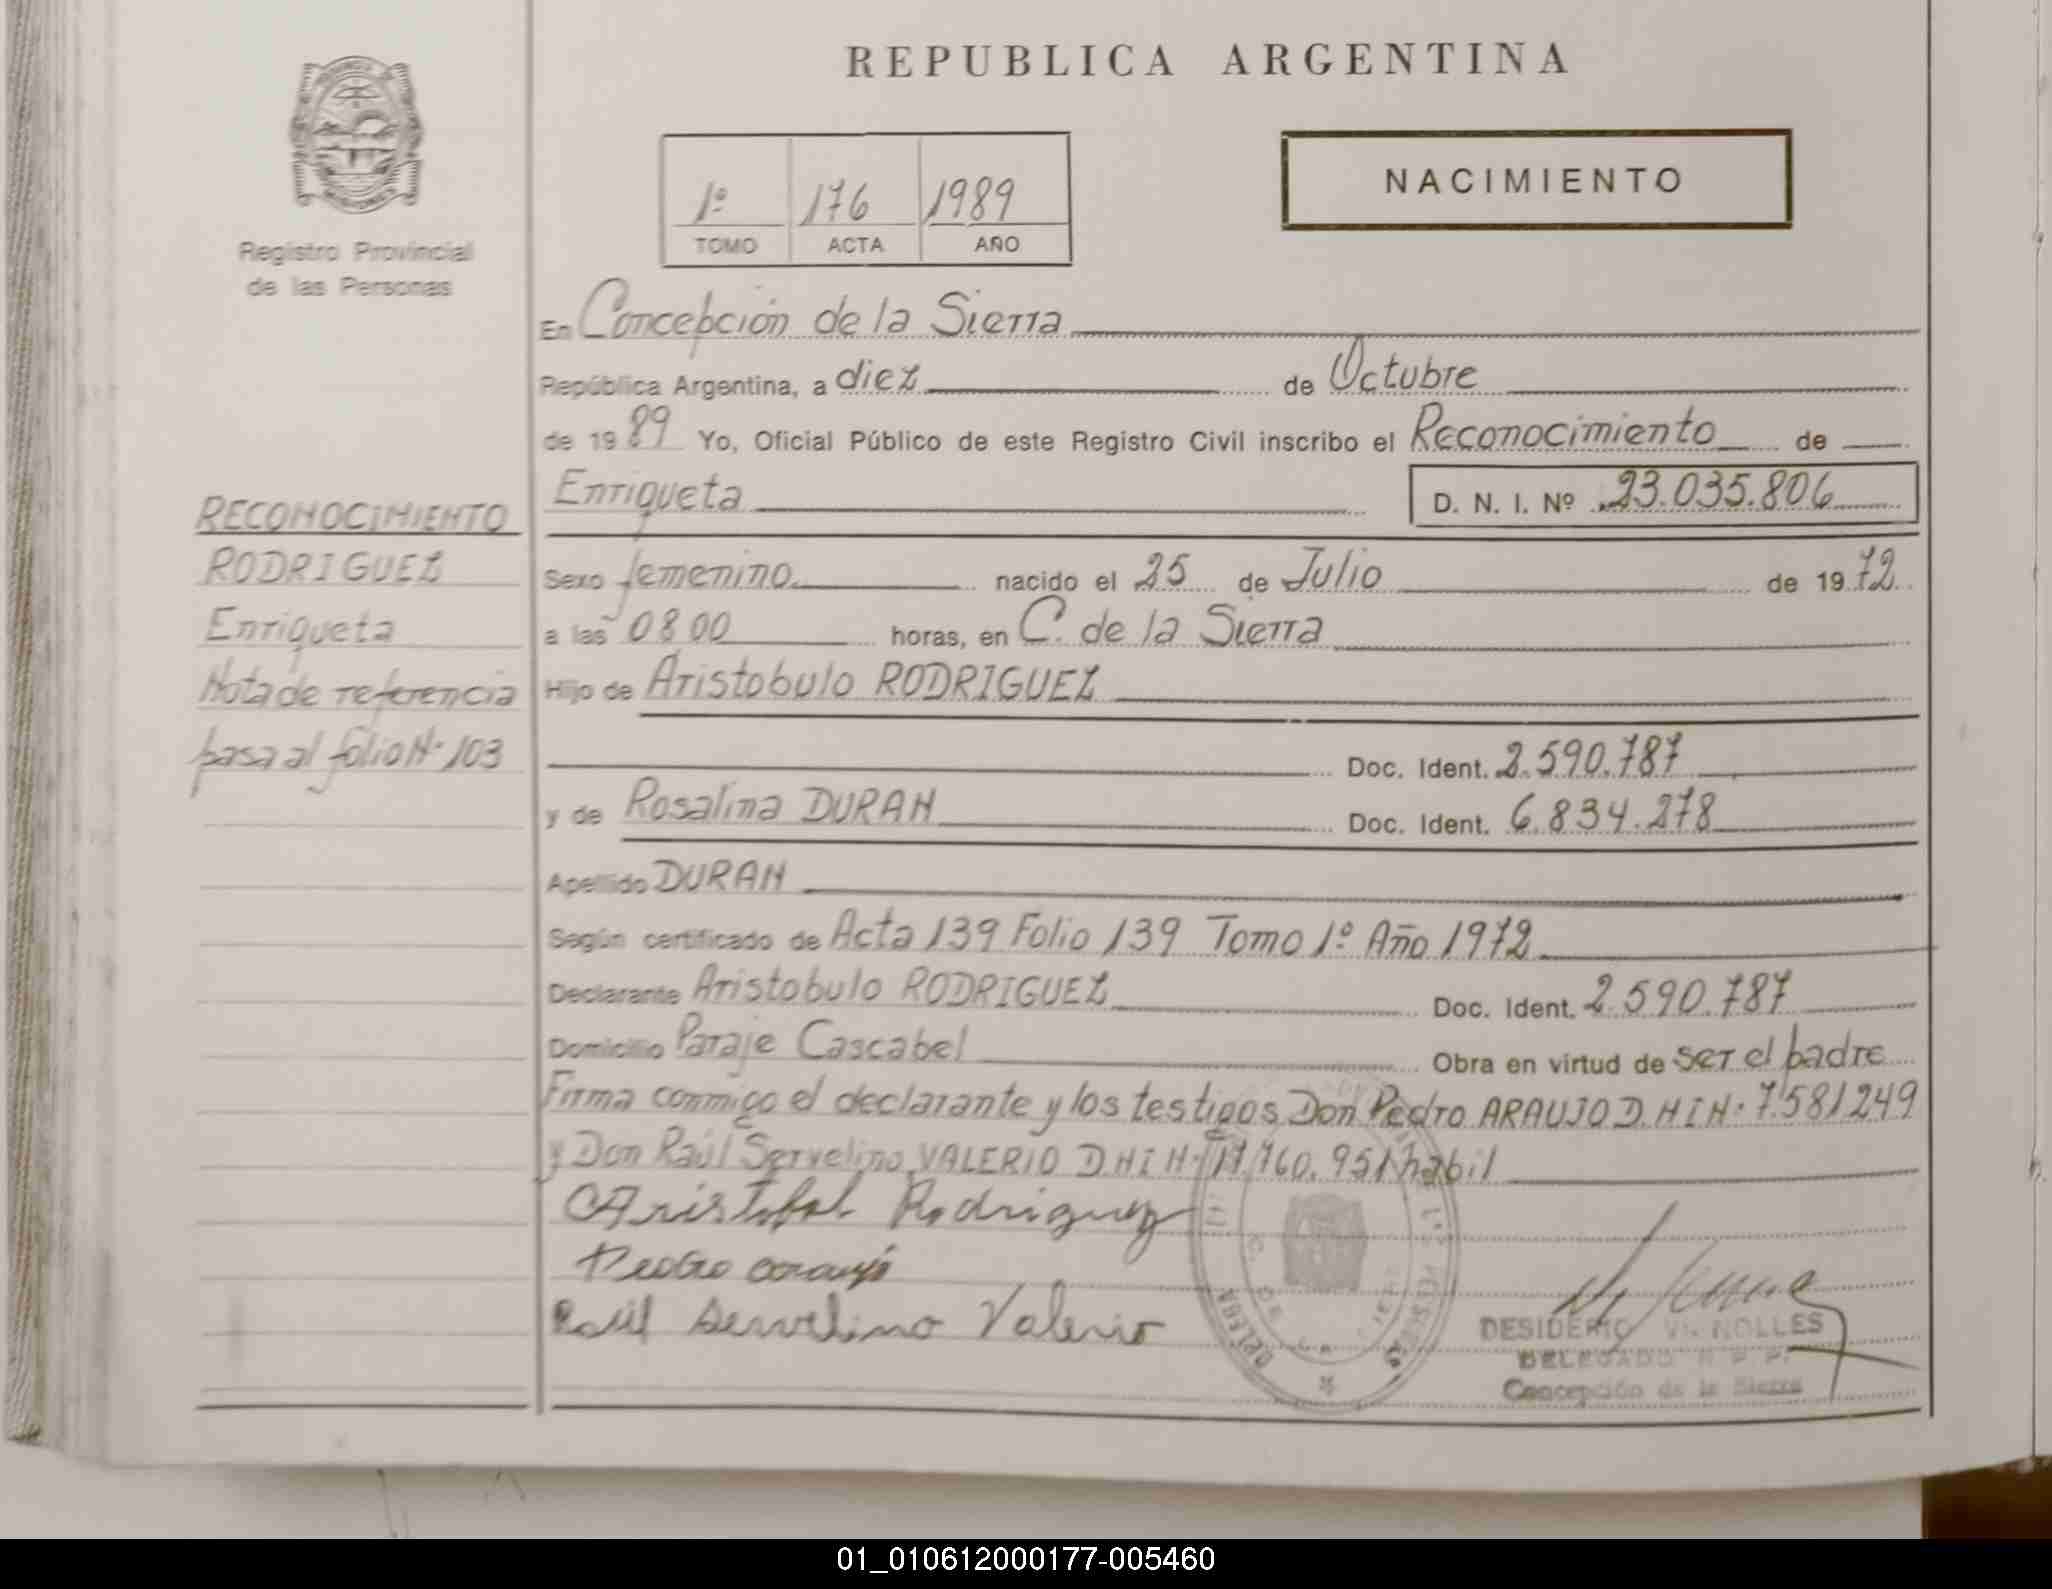 REPUBLICA ARGENTINA
Registro Provincial
de las Personas
1º 176 1989
TOMO ACTA AÑO
NACIMIENTO
En Concepción de la Sierra
República Argentina, a diez de Octubre
de 1989 Yo, Oficial Público de este Registro Civil inscribo el Reconocimiento de
Enriqueta D. N. I. Nº 23.035.806
Sexo femenino nacido el 25 de Julio de 1972
a las 0800 horas, en C. de la Sierra
Hijo de Aristobulo RODRIGUEZ
Doc. Ident. 2.590.787
y de Rosalina DURAN Doc. Ident. 6.834.278
Apellido DURAN
Según certificado de Acta 139 Folio 139 Tomo 1º Año 1972
Declarante Aristobulo RODRIGUEZ Doc. Ident. 2.590.787
Domicilio Paraje Cascabel Obra en virtud de ser el padre
Firma conmigo el declarante y los testigos Don Pedro ARAUJO D.N.I N· 7.581249
y Don Raúl Servelino VALERIO D.N.I N· 17.760.951 habil
RECONOCIMIENTO
RODRIGUEZ
Enriqueta
Nota de referencia
pasa al folio N· 103
Aristobul Rodriguez
Pedro araujo
Raúl Servelino Valerio
DESIDERIO VIGNOLLES
DELEGADO R P P.
Concepción de la Sierra
01_010612000177-005460